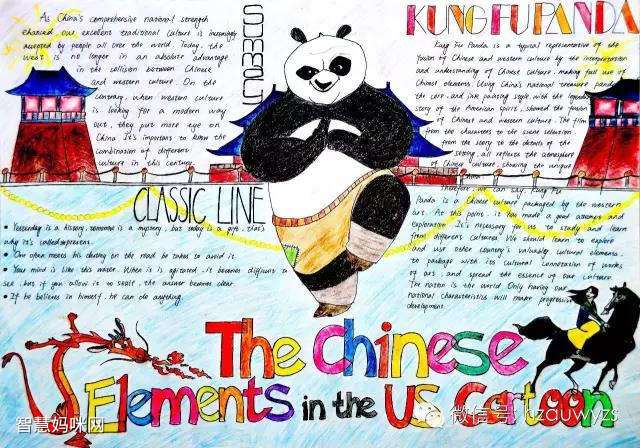 SUMMARY
As China's comprehensive national strength
enhanced, our excellent traditional culture is increasingly
accepted by people all over the world. Today, the
West is no longer in an absolute advantage
in the collision between Chinese
and western culture. On the
contrary, when western culture
is looking for a modern way
out, they put more eye on
China. It's important to know the
combination of different
culture in this century.
KUNG FU PANDA
Kung Fu Panda is a typical representative of the
fusion of Chinese and western culture by the interpretation
and understanding of Chinese culture, making full use of
Chinese elements. Using China's national treasure panda
the core, and ink painting style, with the legendary
story of the American spirit, showed the fusion
of Chinese and western culture. The film
from the characters to the scene selection
from the story to the details of the
setting, all reflects the atmosphere
of Chinese culture, showing the unique
Therefore, we can say, Kung Fu
Panda is a Chinese culture packaged by the western
art. At this point, it has made a good attempt and
exploration. It's necessary for us to study and learn
from different cultures. We should learn to explore
and use other country's valuable cultural elements
to package with its cultural connotation of works
of art, and spread the essence of our culture.
The nation is the world. Only having our
national characteristics will make progressive
development.
CLASSIC LINE
Yesterday is a history, tomorrow is a mystery, but today is a gift, that's
why it's called present.
One often meets his destiny on the road he takes to avoid it.
Your mind is like this water. When it is agitated, it becomes difficult to
see, but if you allow it to settle, the answer becomes clear.
If he believes in himself, he can do anything.
The Chinese
Elements in the US Cartoon
智慧妈咪网
微信号: nzauwyzs